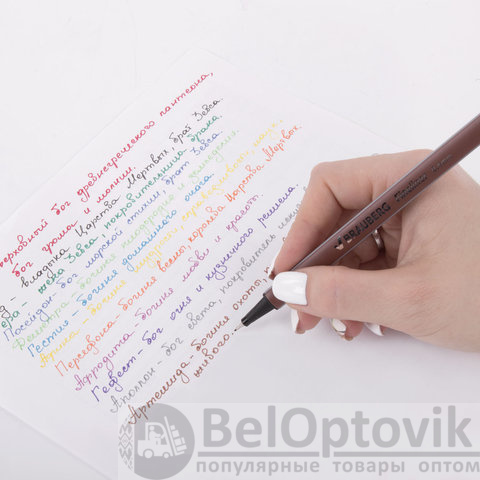 верховный бог древнегреческого пантеона,
бог грома и молнии.
владыка Царства Мёртвых, брат Зевса
жена Зевса, покровительница брака.
Посейдон - бог морской стихии, брат Зевса.
Деметра - богиня плодородия и земледелия.
Гестия - богиня домашнего очага.
богиня мудрости, справедливости, наук,
Персефона - богиня весны, королева Царства Мёртвых.
Афродита - богиня любви и красоты.
Гефест - бог огня и кузнечного ремесла.
Аполлон - бог света, покровитель
Артемида - богиня охоты,
живого.
BRAUBERG
BelOptovik
популярные товары оптом